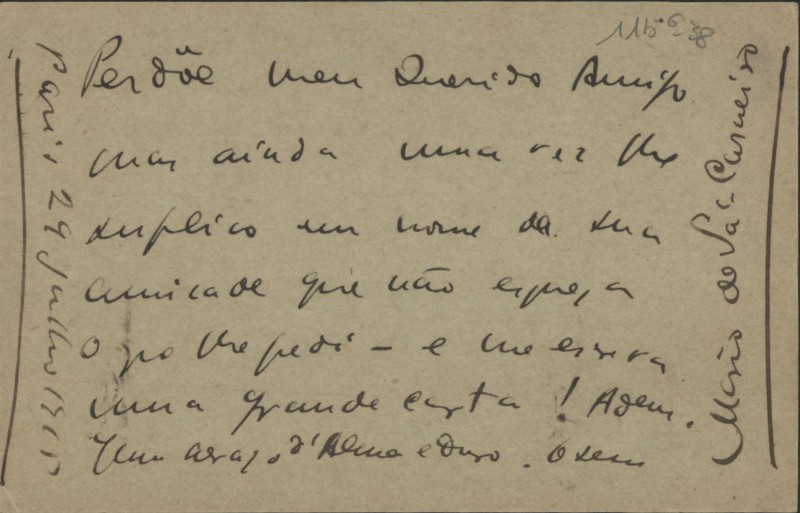 115⁶-38
Paris 29 Julho 1915
Perdôe meu Querido Amigo
mas ainda uma vez lhe
suplico em nome da sua
amizade que não esqueça
O q̃ lhe pedi – e me escreva
uma grande carta! Adeus.
Um abraço d'Alma e Ouro. O seu
Mário de Sá-Carneiro